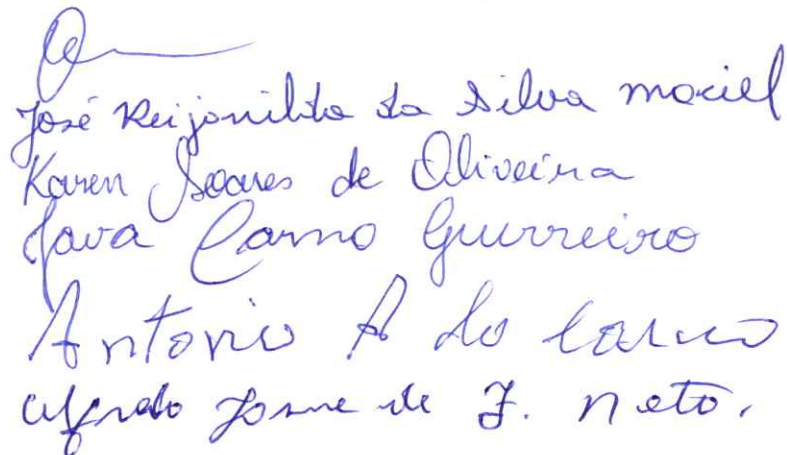 José Reijanildo da Silva maciel
Karen Soares de Oliveira
Carmo Guerreiro
Antonio A do Carmo
de J. neto.